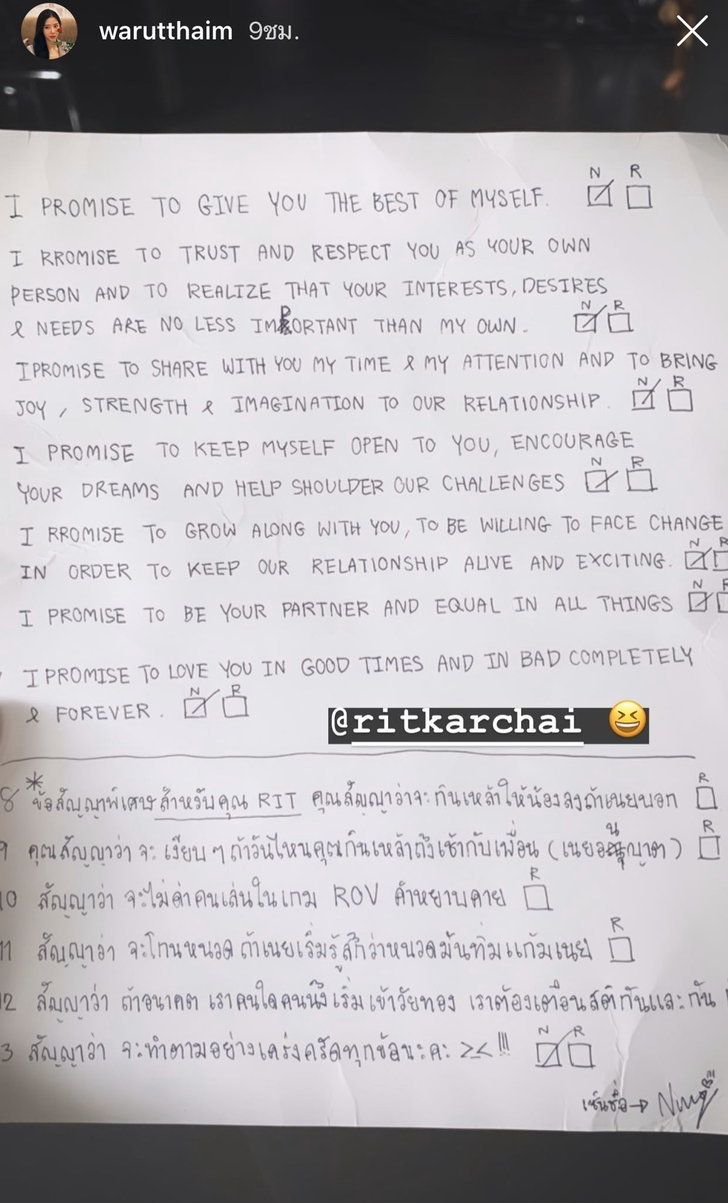 warutthaim 9ชม.
N R
I PROMISE TO GIVE YOU THE BEST OF MYSELF.
I RROMISE TO TRUST AND RESPECT YOU AS YOUR OWN
PERSON AND TO REALIZE THAT YOUR INTERESTS, DESIRES
N R
& NEEDS ARE NO LESS IMPORTANT THAN MY OWN.
I PROMISE TO SHARE WITH YOU MY TIME & MY ATTENTION AND TO BRING
N R
JOY, STRENGTH & IMAGINATION TO OUR RELATIONSHIP.
I PROMISE TO KEEP MYSELF OPEN TO YOU, ENCOURAGE
N R
YOUR DREAMS AND HELP SHOULDER OUR CHALLENGES
I RROMISE TO GROW ALONG WITH YOU, TO BE WILLING TO FACE CHANGE
N R
IN ORDER TO KEEP OUR RELATIONSHIP ALIVE AND EXCITING.
N R
I PROMISE TO BE YOUR PARTNER AND EQUAL IN ALL THINGS
I PROMISE TO LOVE YOU IN GOOD TIMES AND IN BAD COMPLETELY
N R
& FOREVER.
@ritkarchai 😆
R
8 *ข้อสัญญาพิเศษสำหรับคุณ RIT คุณสัญญาว่าจะกินเหล้าให้น้องลงถ้าเนยบอก
R
9 คุณสัญญาว่า จะ เงียบๆ ถ้าวันไหนคุณกินเหล้าถึงเช้ากับเพื่อน (เนยอนุญาต)
R
10 สัญญาว่า จะไม่ด่าคนเล่นในเกม ROV คำหยาบคาย
R
11 สัญญาว่า จะโกนหนวด ถ้าเนยเริ่มรู้สึกว่าหนวดมันทิ่มแก้มเนย
12 สัญญาว่า ถ้าอนาคต เราคนใดคนนึงเริ่มเข้าวัยทอง เราต้องเตือนสติกันและกัน
N R
3 สัญญาว่า จะทำตามอย่างเคร่งครัดทุกข้อนะคะ ><!!!
เซ็นชื่อ →